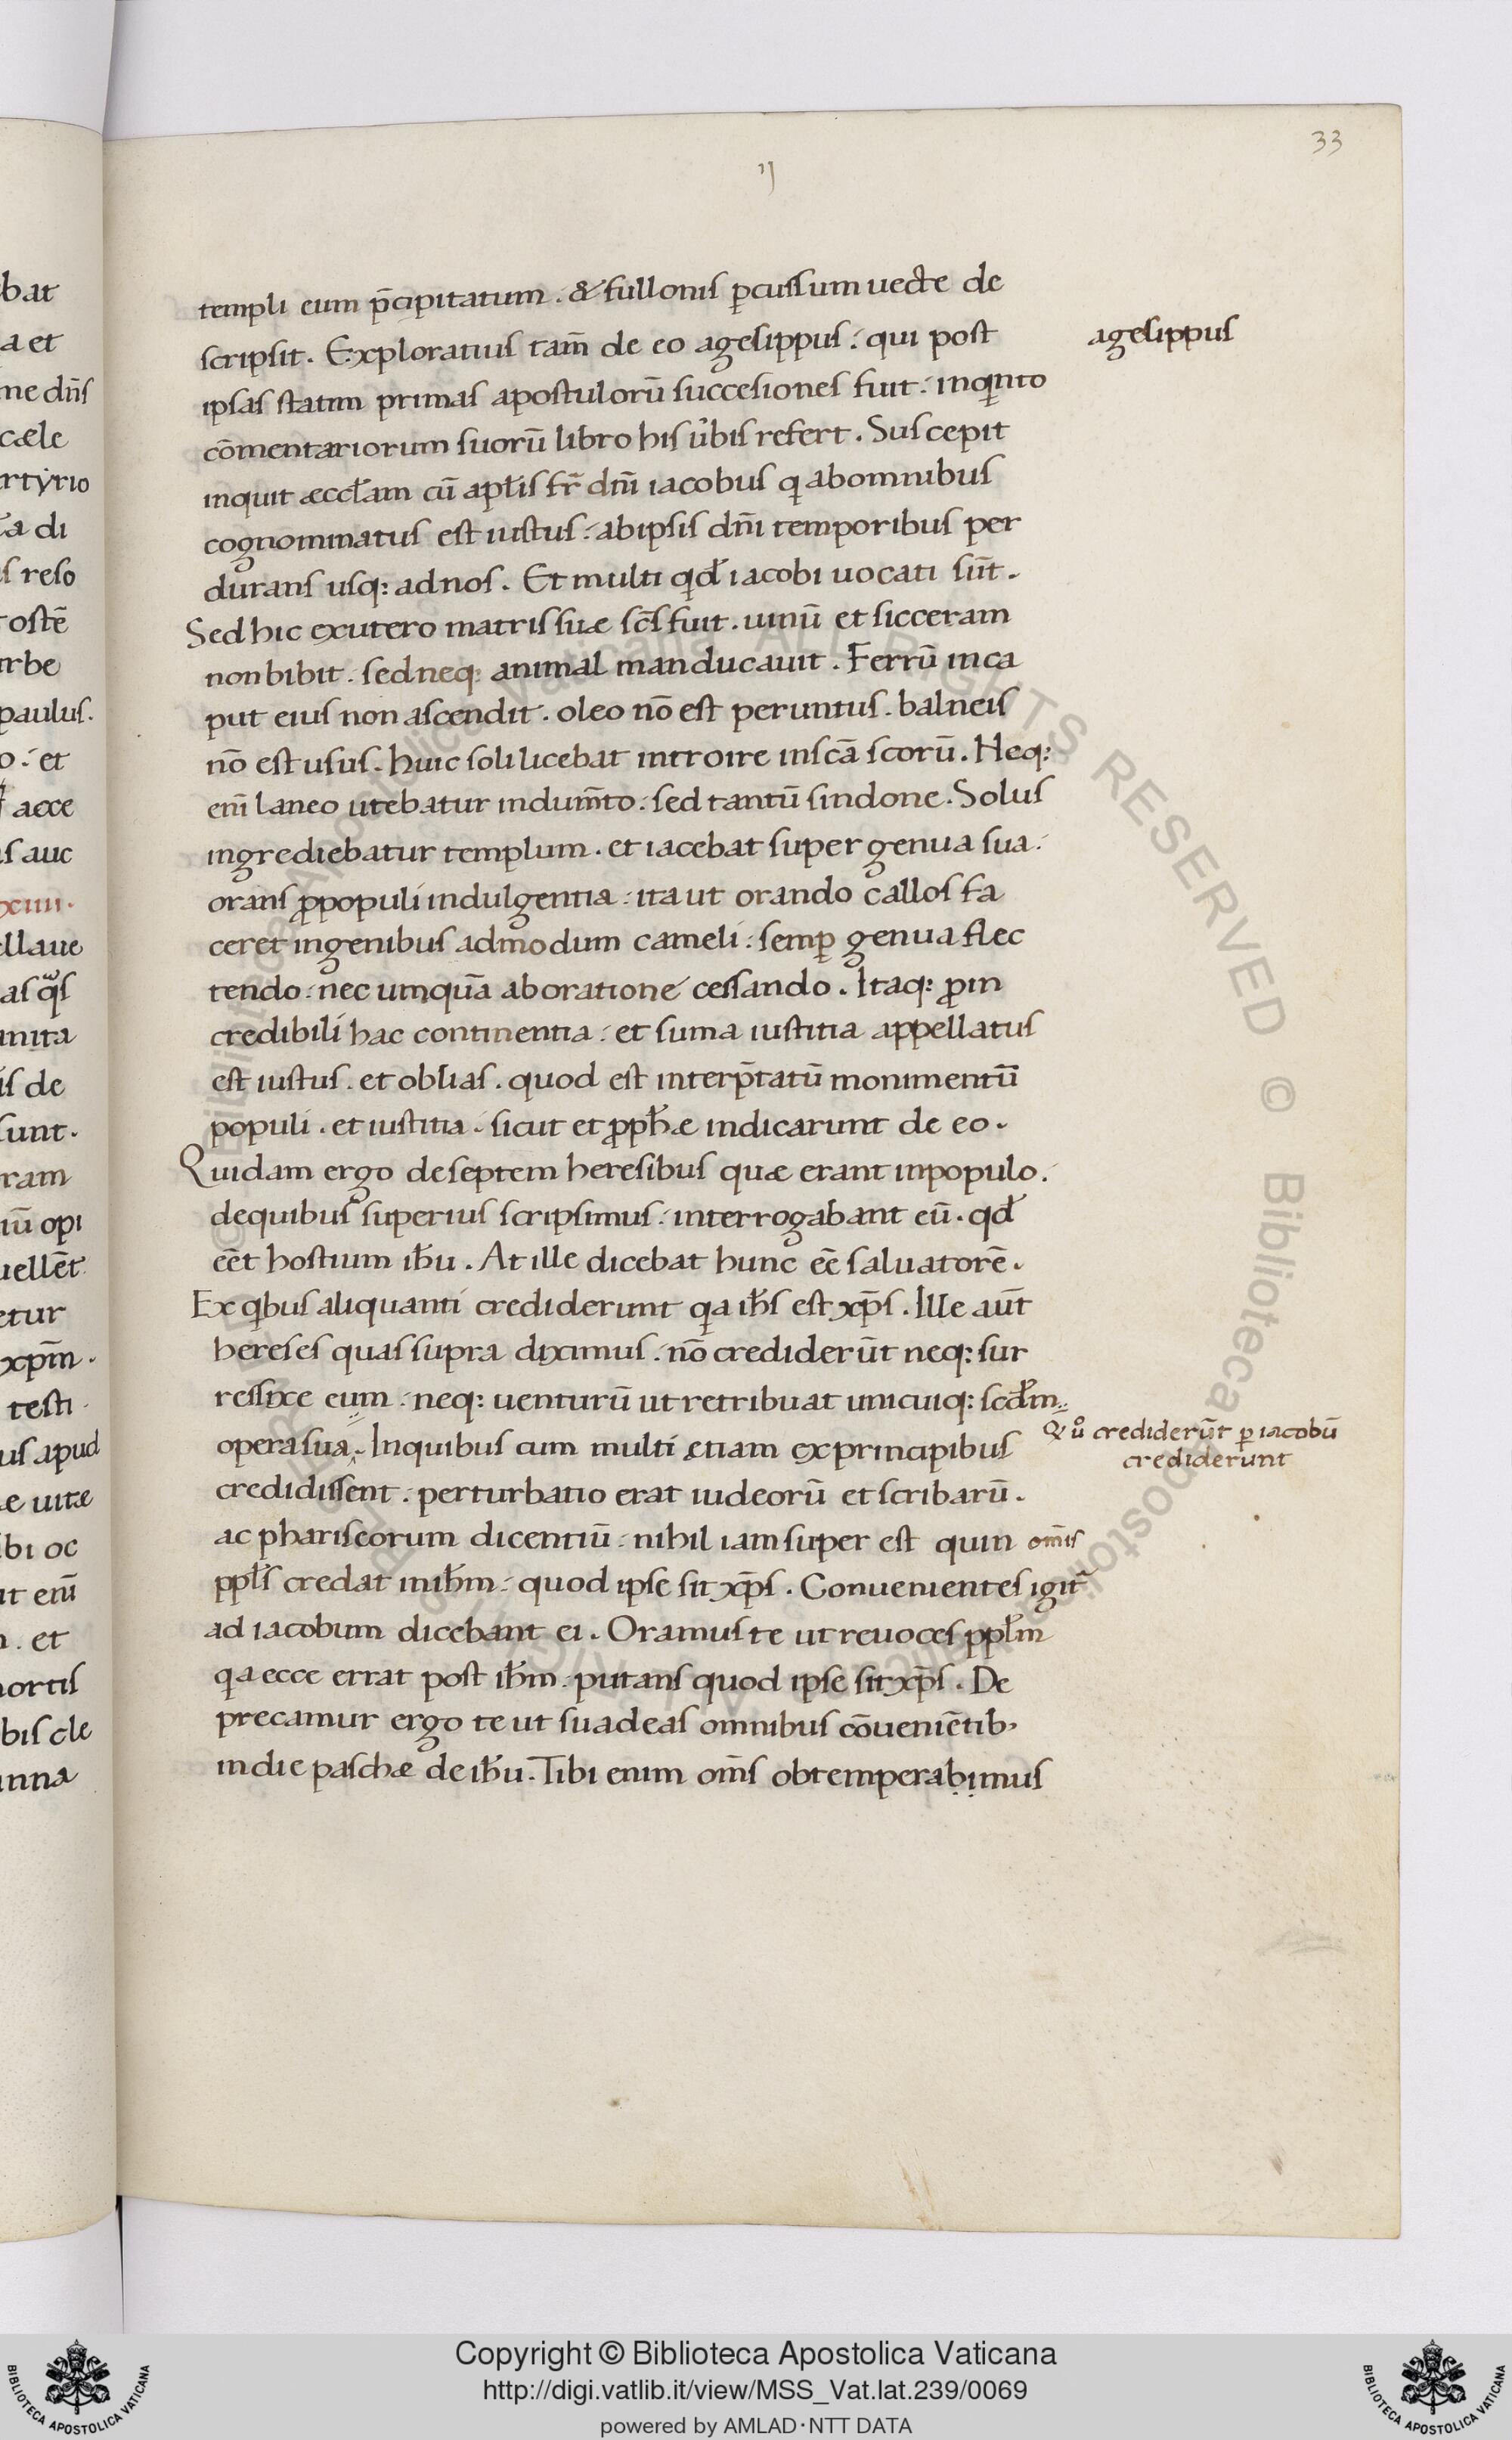 33
ij
templi eum p̄cipitatum . & fullonis ꝑcussum uecte de
scripsit . Exploratius tam̄ de eo agesippus . qui post
agesippus
ipsas statim primas apostulorū succesiones fuit . inqinto
cōmentariorum suorū libro his ūbis refert . Suscepit
inquit æccƚam cū apƚis fr̄ dnī iacobus q abomnibus
cognominatus est iustus . abipsis dn̄i temporibus per
durans usq: adnos . Et multi qiđ iacobi uocati sūt .
Sed hic exutero matris suæ sc̄s fuit . uinū et sicceram
nonbibit . sedneq: animal manducauit . Ferrū inca
put eius non ascendit . oleo nō est peruntus . balneis
nō est usus . huic soli licebat introire inscā scorū . Neq:
eni̅ laneo utebatur indum̄to . sed tantū sindone . Solus
ingrediebatur templum . et iacebat super genua sua .
orans ꝓpopuli indulgentia . ita ut orando callos fa
ceret ingenibus admodum cameli . semꝑ genua flec
tendo . nec umquā aboratione cessando . Itaq: ꝓin
credibili hac continentia . et suma iustitia appellatus
est iustus . et oblias . quod est interp̄tatū monimentū
populi . et iustitia . sicut et ꝓpħæ indicarunt de eo .
Quidam ergo deseptem heresibus quæ erant inpopulo .
dequibus superius scripsimus . interrogabant eū . qđ
eēt hostium iħu . At ille dicebat hunc eē saluatorē .
Ex qibus aliquanti crediderunt qa iħs est xp̄s . Ille aūt
hereses quas supra diximus . nō crediderūt neq: sur
ressixce eum . neq: uenturū ut retribuat unicuiq: scđm
opera sua . Inquibus cum multi etiam exprincipibus
Qi ů crediderūt ꝑ iacobū
crediderunt
credidissent . perturbatio erat iudeorū et scribarū .
ac phariseorum dicentiū . nihil iam super est quin om̄is
ppƚs credat iniħm . quod ipse sit xp̄s . Conuenientes igit̄
ad iacobum dicebant ei . Oramus te ut reuoces ppƚm
qa ecce errat post iħm . putans quod ipse sit xp̄s . De
precamur ergo te ut suadeas omnibus cōueniētib,
indie paschæ de iħu . Tibi enim om̄s obtemperabimus
Copyright © Biblioteca Apostolica Vaticana
http://digi.vatlib.it/view/MSS_Vat.lat.239/0069
powered by AMLAD·NTT DATA
BIBLIOTECA APOSTOLICA VATICANA
BIBLIOTECA APOSTOLICA VATICANA